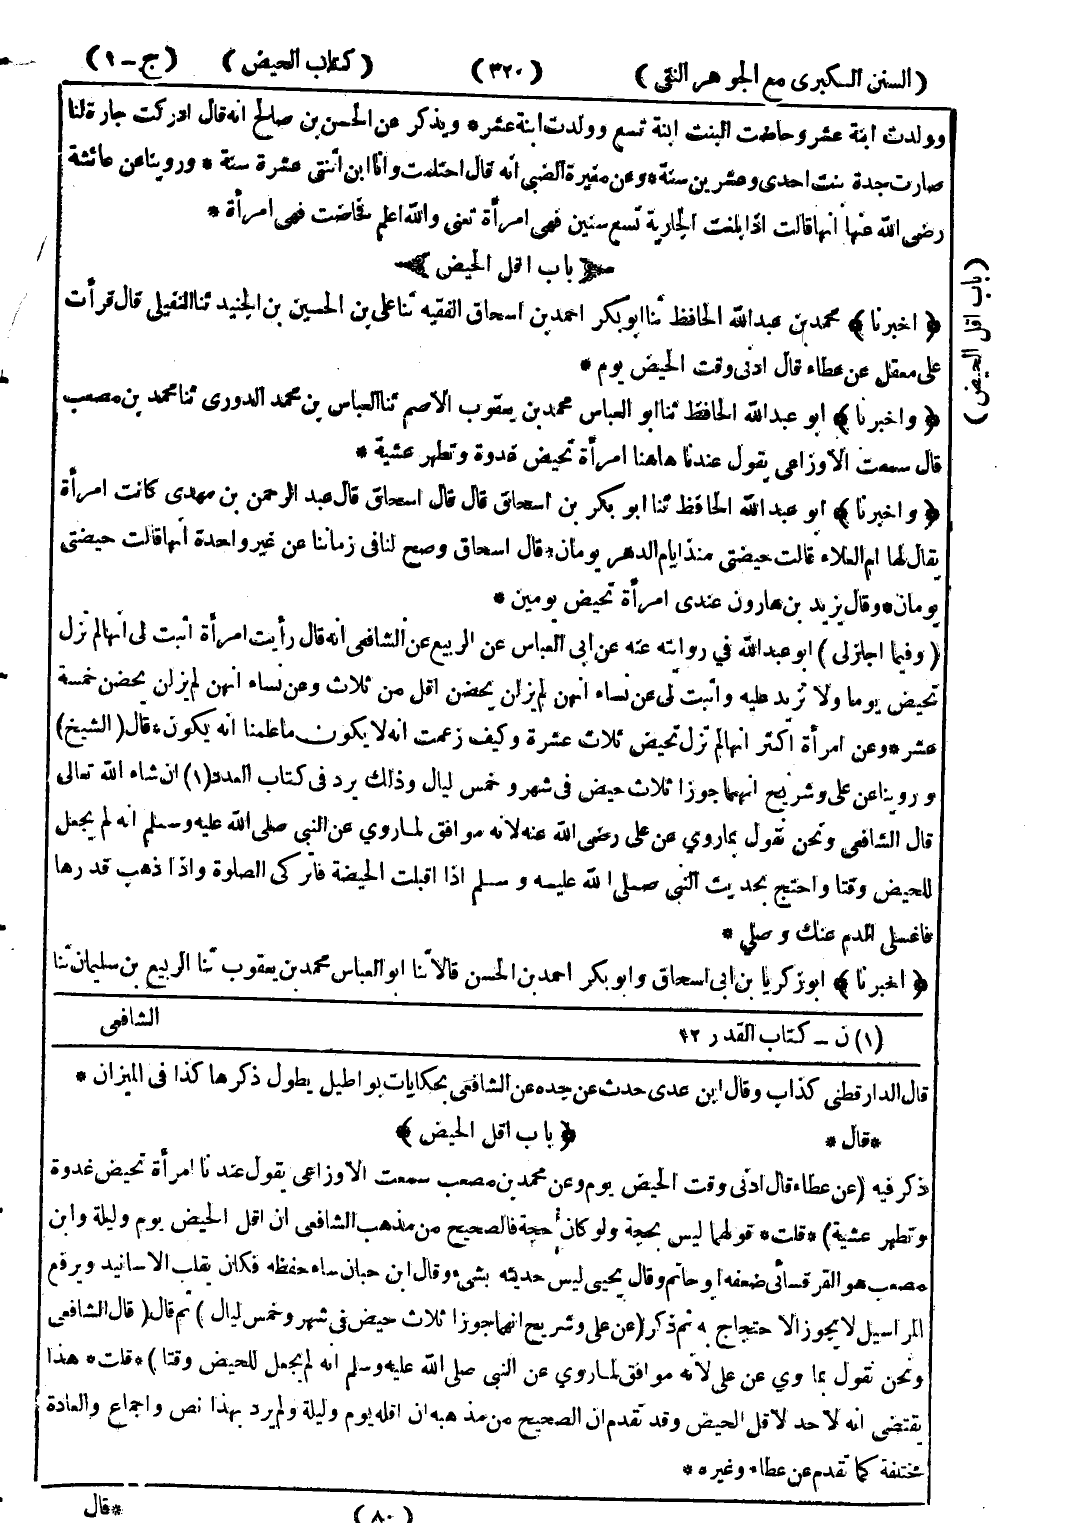 (السنن الكبرى مع الجوهر النقى) (٣٢٠) (كتاب الحيض) (ج - ١)
وولدت ابنة عشر وحاضت البنت ابنة تسع وولدت ابنة عشر * ويذكر عن الحسن بن صالح انه قال ادركت جارة لنا
صارت جدة بنت احدى وعشرين سنة * وعن مغيرة الضبى انه قال احتلمت وانا ابن اثنتى عشرة سنة * وروينا عن عائشة
رضى الله عنها انها قالت اذا بلغت الجارية تسع سنين فهى امرأة تعنى والله اعلم فحاضت فهى امرأة *
باب اقل الحيض
(باب اقل الحيض)
﴿ اخبرنا ﴾ محمد بن عبدالله الحافظ ثنا ابو بكر احمد بن اسحاق الفقيه ثنا على بن الحسين بن الجنيد ثنا النفيلى قال قرأت
على معقل عن عطاء قال ادنى وقت الحيض يوم *
﴿ واخبرنا ﴾ ابو عبدالله الحافظ ثنا ابو العباس محمد بن يعقوب الاصم ثنا العباس بن محمد الدورى ثنا محمد بن مصعب
قال سمعت الاوزاعى يقول عندنا هاهنا امرأة تحيض غدوة وتطهر عشية *
﴿ واخبرنا ﴾ ابو عبدالله الحافظ ثنا ابو بكر بن اسحاق قال قال اسحاق قال عبد الرحمن بن مهدى كانت امرأة
يقال لها ام العلاء قالت حيضتى منذ ايام الدهر يومان * قال اسحاق وصح لنا فى زماننا عن غير واحدة انها قالت حيضتى
يومان * وقال يزيد بن هارون عندى امرأة تحيض يومين *
(وفيما اجاز لى) ابو عبدالله في روايته عنه عن ابى العباس عن الربيع عن الشافعى انه قال رأيت امرأة اثبت لى انها لم تزل
تحيض يوما ولا تزيد عليه واثبت لى عن نساء انهن لم يزلن يحضن اقل من ثلاث وعن نساء انهن لم يزلن يحضن خمسة
عشر * وعن امرأة اكثر انها لم تزل تحيض ثلاث عشرة وكيف زعمت انه لا يكون ما علمنا انه يكون * قال (الشيخ)
وروينا عن على وشريح انهما جوزا ثلاث حيض فى شهر وخمس ليال وذلك يرد فى كتاب العدد (١) ان شاء الله تعالى
قال الشافعى ونحن نقول بماروي عن على رضى الله عنه لانه موافق لماروي عن النبي صلى الله عليه وسلم انه لم يجعل
للحيض وقتا واحتج بحديث النبى صلى الله عليه وسلم اذا اقبلت الحيضة فاتركى الصلوة واذا ذهب قدرها
فاغسلى الدم عنك وصلي *
﴿ اخبرنا ﴾ ابو زكريا بن ابى اسحاق وابو بكر احمد بن الحسن قالا ثنا ابو العباس محمد بن يعقوب ثنا الربيع بن سليمان ثنا
الشافعى
(١) ن - كتاب القدر ١٢
قال الدارقطنى كذاب وقال ابن عدى حدث عن جده عن الشافعى بحكايات بواطيل يطول ذكرها كذا فى الميزان *
* قال * ﴿ باب اقل الحيض ﴾
ذكر فيه (عن عطاء قال ادنى وقت الحيض يوم وعن محمد بن مصعب سمعت الاوزاعى يقول عندنا امرأة تحيض غدوة
وتطهر عشية) * قلت * قولهما ليس بحجة ولو كان حجة فالصحيح من مذهب الشافعى ان اقل الحيض يوم وليلة وابن
مصعب هو القرقسائى ضعفه ابو حاتم وقال يحيى ليس حديثه بشىء وقال ابن حبان ساء حفظه فكان يقلب الاسانيد ويرفع
المراسيل لا يجوز الاحتجاج به ثم ذكر (عن على وشريح انهما جوزا ثلاث حيض فى شهر وخمس ليال) ثم قال (قال الشافعى
ونحن نقول بما روي عن على لانه موافق لماروي عن النبى صلى الله عليه وسلم انه لم يجعل للحيض وقتا) * قلت * هذا
يقتضى انه لا حد لاقل الحيض وقد تقدم ان الصحيح من مذهبه ان اقله يوم وليلة ولم يرد بهذا نص واجماع والعادة
مختلفة كما تقدم عن عطاء وغيره *
* قال
(٨٠)